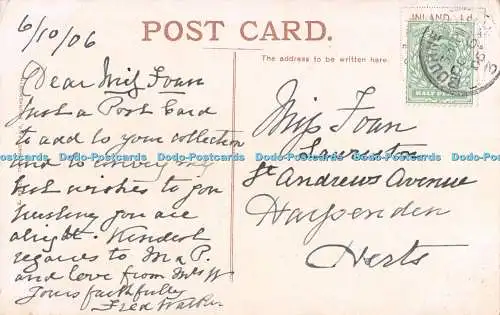 6/10/06
POST CARD.
The address to be written here.
INLAND
HALF PENNY
Dear Miss Joan
Just a Post Card
to add to your collection
and to convey my
best wishes to you
trusting you are
alright. Kindest
regards to M & P.
and love from Mrs W
Yours faithfully
Fred Walker
Miss Joan
Lauriston
St Andrews Avenue
Harpenden
Herts
Dodo-Postcards Dodo-Postcards Dodo-Postcards Dodo-Postcards Dodo-Postcards